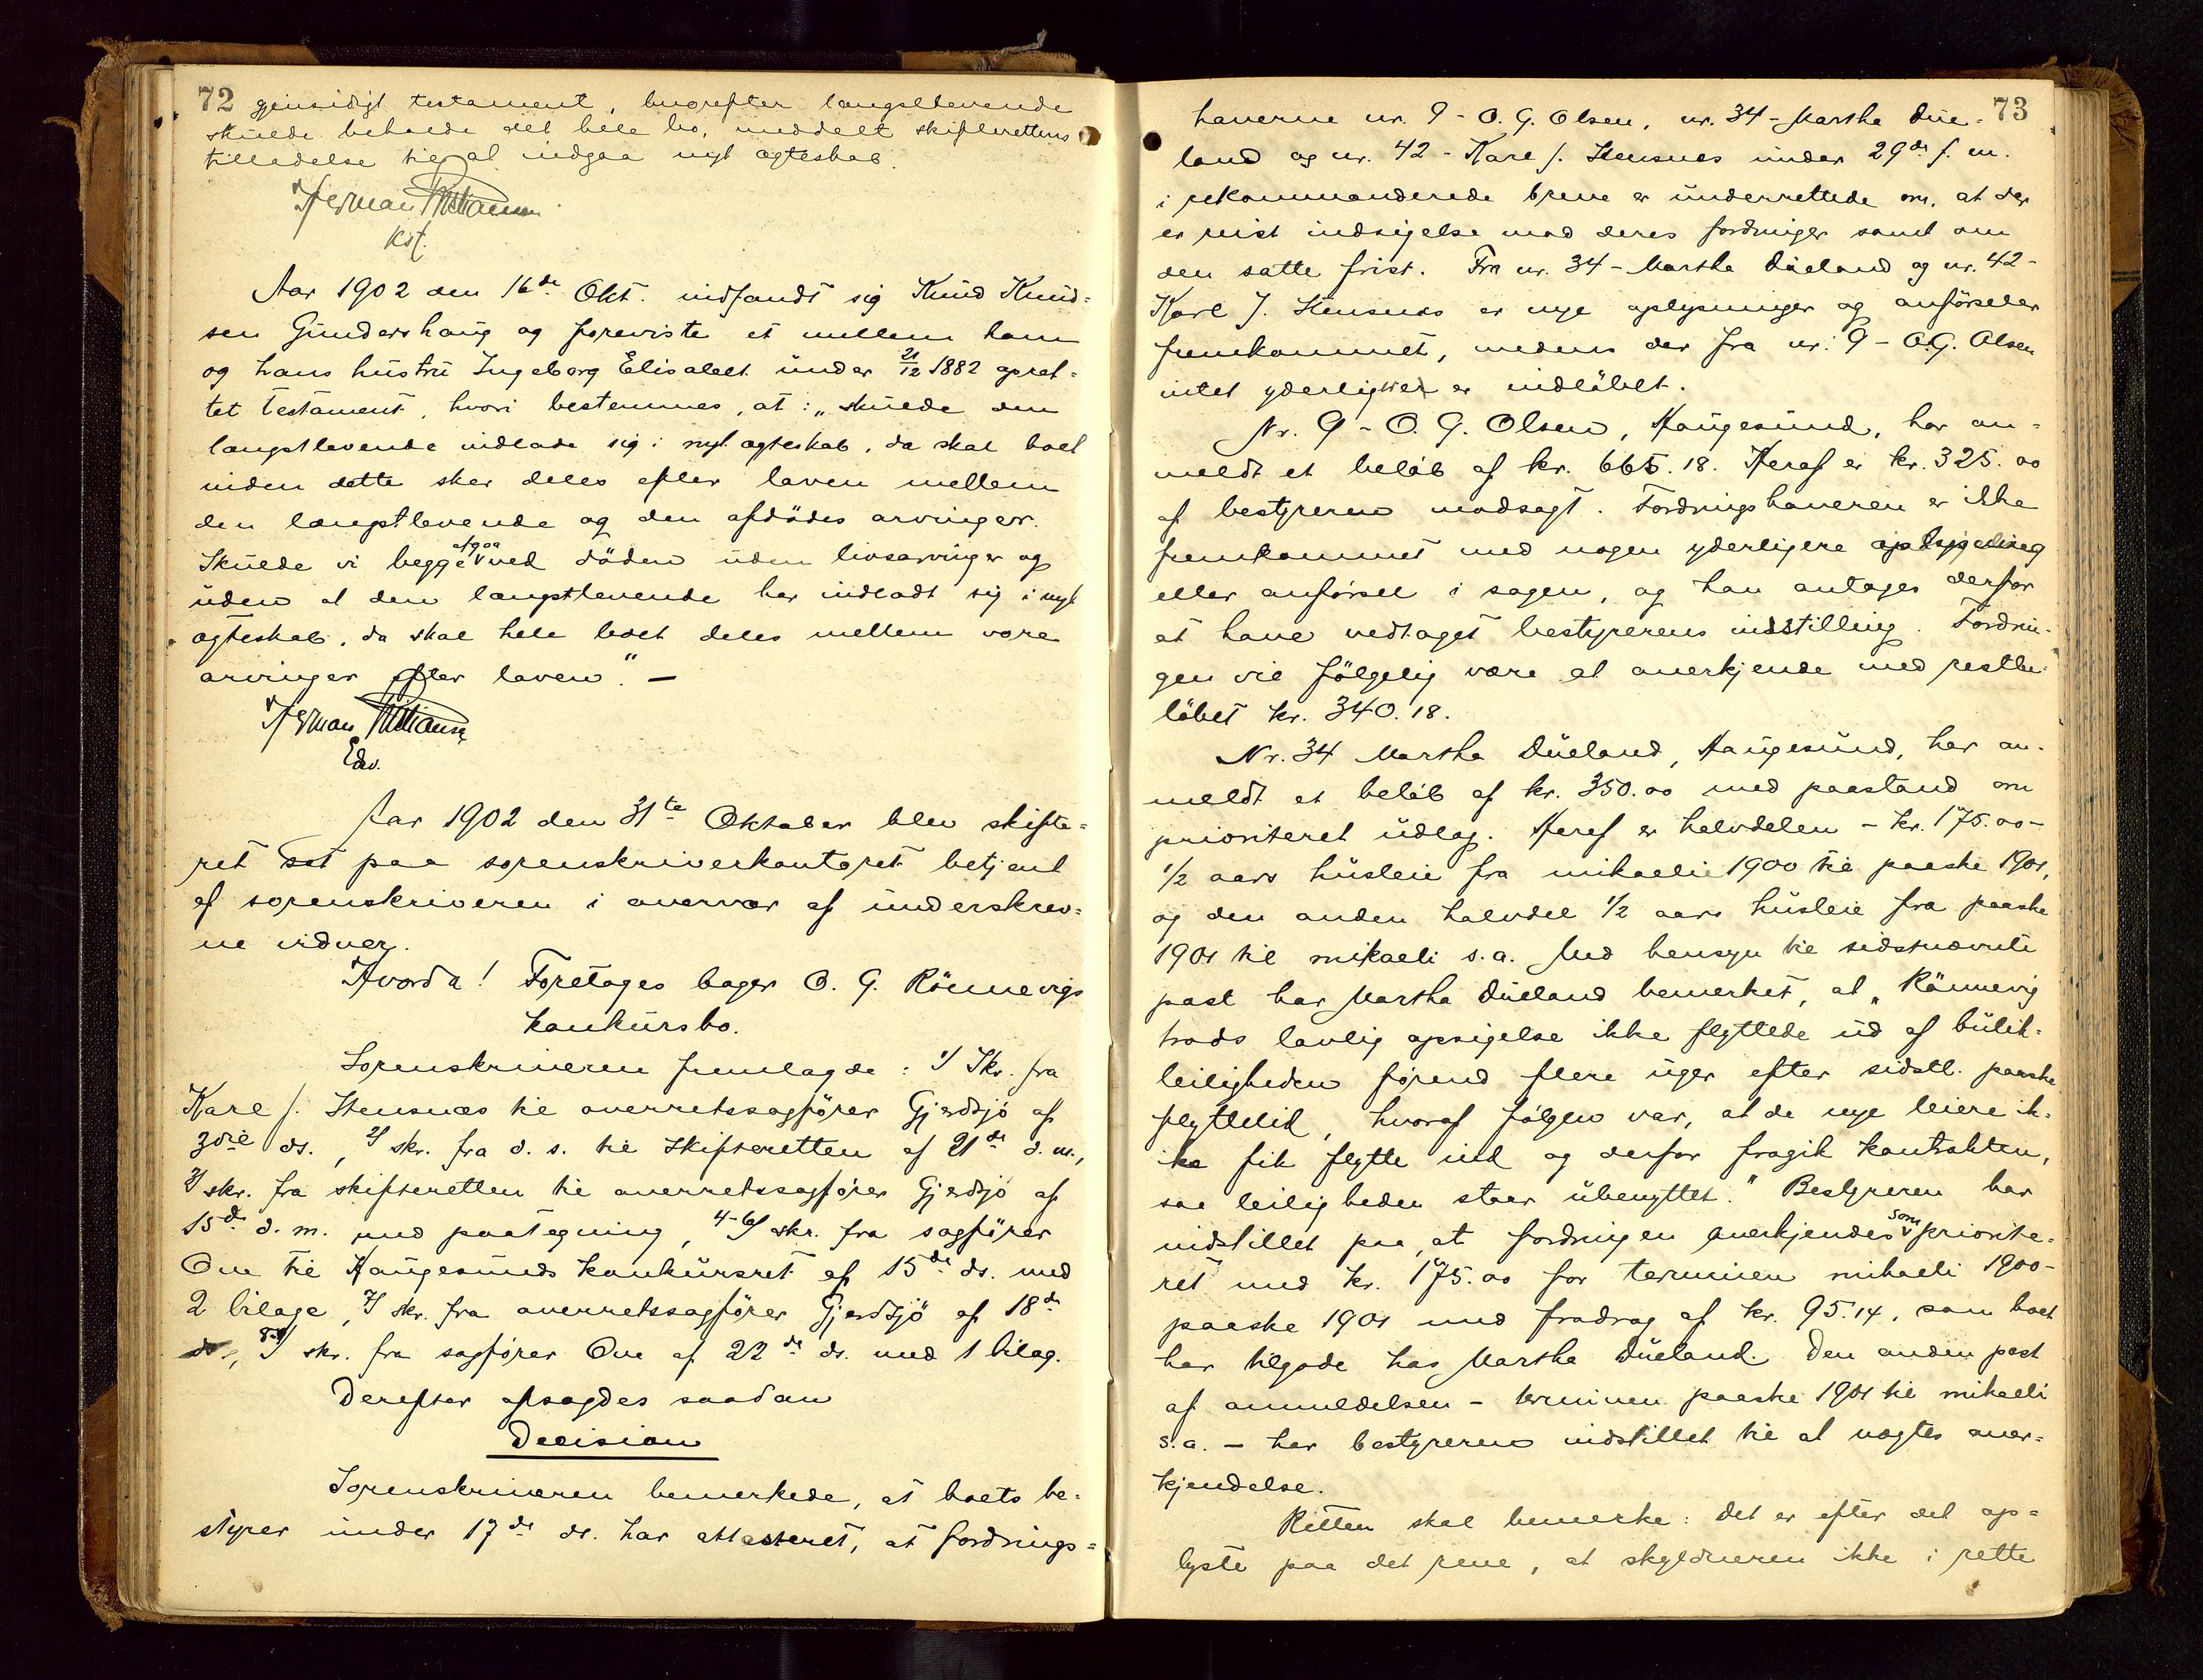 72 gjensidigt testament, hvorefter længstlevende
skulde beholde det hele bo, meddelt skifterettens
tilladelse til at indgaa nyt ægteskab.
Herman Christiansen
kst.
Aar 1902 den 16de Okt. indfandt sig Knud Knud-
sen Gundershaug og foreviste et mellem ham
og hans hustru Ingeborg Elisabet under 21/12 1882 opret-
tet testament, hvori bestemmes, at: "skulde den
længstlevende indlade sig i nyt ægteskab, da skal boet
inden dette sker deles efter loven mellem
den længstlevende og den afdødes arvinger.
Skulde vi begge afgaa ved döden uden livsarvinger og
uden at den længstlevende har indladt sig i nyt
ægteskab, da skal hele boet deles mellem vore
arvinger efter loven." —
Herman Christiansen
Edv.
Aar 1902 den 31te Oktober blev skifte-
ret sat paa sorenskriverkontoret betjent
af sorenskriveren i overvær af underskrev-
ne vidner.
Hvorda! Foretoges bager O. G. Rönnevigs
konkursbo.
Sorenskriveren fremlagde: 1/ Skr. fra
Karl J. Stensnæs til overretssagförer Gjerdsjö af
3die ds., 2/ skr. fra d. s. til Skifteretten af 21de d. m.,
3/ skr. fra skifteretten til overretssagfører Gjerdsjö af
15de d. m. med paategning, 4-6/ skr. fra sagförer
Owe til Haugesunds konkursret af 15de ds. med
2 bilage, 7/ skr. fra overretssagfører Gjerdsjö af 18de
ds., 8-9/ skr. fra sagfører Owe af 22de ds. med 1 bilag.
Derefter afsagdes saadan
Decision
Sorenskriveren bemerkede, at boets be-
styrer under 17de ds. har attesteret, at fordrings-
73
haverne nr. 9 - O. G. Olsen, nr. 34 - Martha Due-
land og nr. 42 - Karl J. Stensnæs under 29de f. m.
i rekommanderede breve er underrettede om, at der
er reist indsigelse mod deres fordringer samt om
den satte frist. Fra nr. 34 - Martha Dueland og nr. 42 -
Karl J. Stensnæs er nye oplysninger og anförseler
fremkommet, medens der fra nr. 9 - O. G. Olsen
intet yderligere er indlöbet.
Nr. 9 - O. G. Olsen, Haugesund, har an-
meldt et belöb af kr. 665.18. Heraf er kr. 325.00
af bestyreren modsagt. Fordringshaveren er ikke
fremkommet med nogen yderligere oplysning
eller anförsel i sagen, og han antages derfor
at have vedtaget bestyrerens indstilling. Fordrin-
gen vil fölgelig være at anerkjende med restbe-
löbet kr. 340.18.
Nr. 34 Martha Dueland, Haugesund, har an-
meldt et belöb af kr. 350.00 med paastand om
prioriteret udlæg. Heraf er halvdelen - kr. 175.00 -
1/2 aars husleie fra mikaeli 1900 til paaske 1901,
og den anden halvdel 1/2 aars husleie fra paaske
1901 til mikaeli s. a. Med hensyn til sidstnævnte
post har Martha Dueland bemerket, at "Rönnevig
trods lovlig opsigelse ikke flyttede ud af butik-
leiligheden förend flere uger efter sidstl. paaske
flyttetid, hvoraf fölgen var, at de nye leiere ik-
ke fik flytte ind og derfor fragik kontrakten,
saa leiligheden staar ubenyttet." Bestyreren har
indstillet paa, at fordringen anerkjendes som priorite-
ret med kr. 175.00 for terminen mikaeli 1900 -
paaske 1901 med fradrag af kr. 95.14, som boet
har tilgode hos Martha Dueland. Den anden post
af anmeldelsen - terminen paaske 1901 til mikaeli
s. a. - har bestyreren indstillet til at nægtes aner-
kjendelse.
Retten skal bemerke: Det er efter det op-
lyste paa det rene, at skyldneren ikke i rette